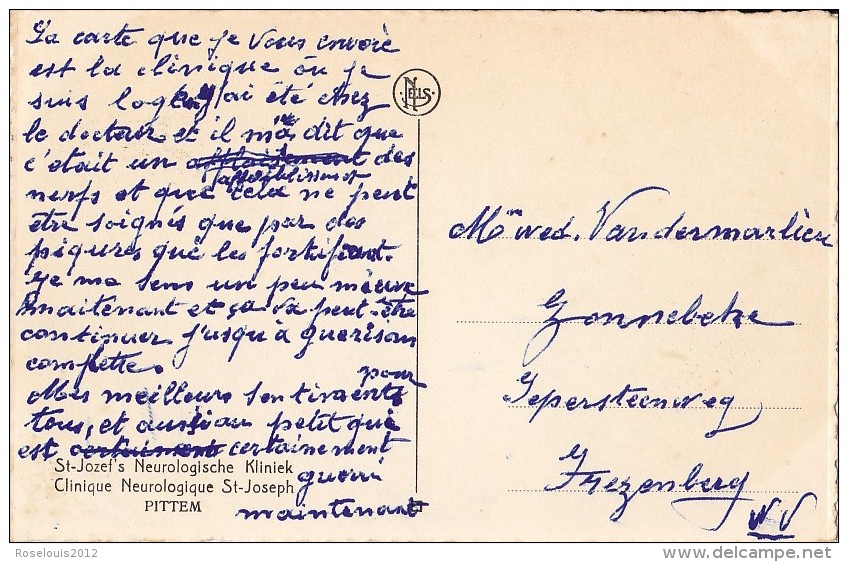 La carte que je vous envoie
est la clinique où je
suis j'ai été chez
le docteur et il m'a dit que
c'etait un affaiblissement des
nerfs et que cela ne peut
être soignés que par des
piqures qui les fortifient.
Je me sens un peu mieux
maitenant et ça va peut-être
continuer j'usqu'à guerison
complette.
Mes meilleurs sentiments pour
tous, et aussi au petit qui
est certainement certainement
guerri
maintenant
St-Jozef's Neurologische Kliniek
Clinique Neurologique St-Joseph
PITTEM
NELS
Mᵐ wed. Vandermarliere
Zonnebeke
Iepersteenweg
Frezenberg
W V
Roselouis2012
delcampe.net